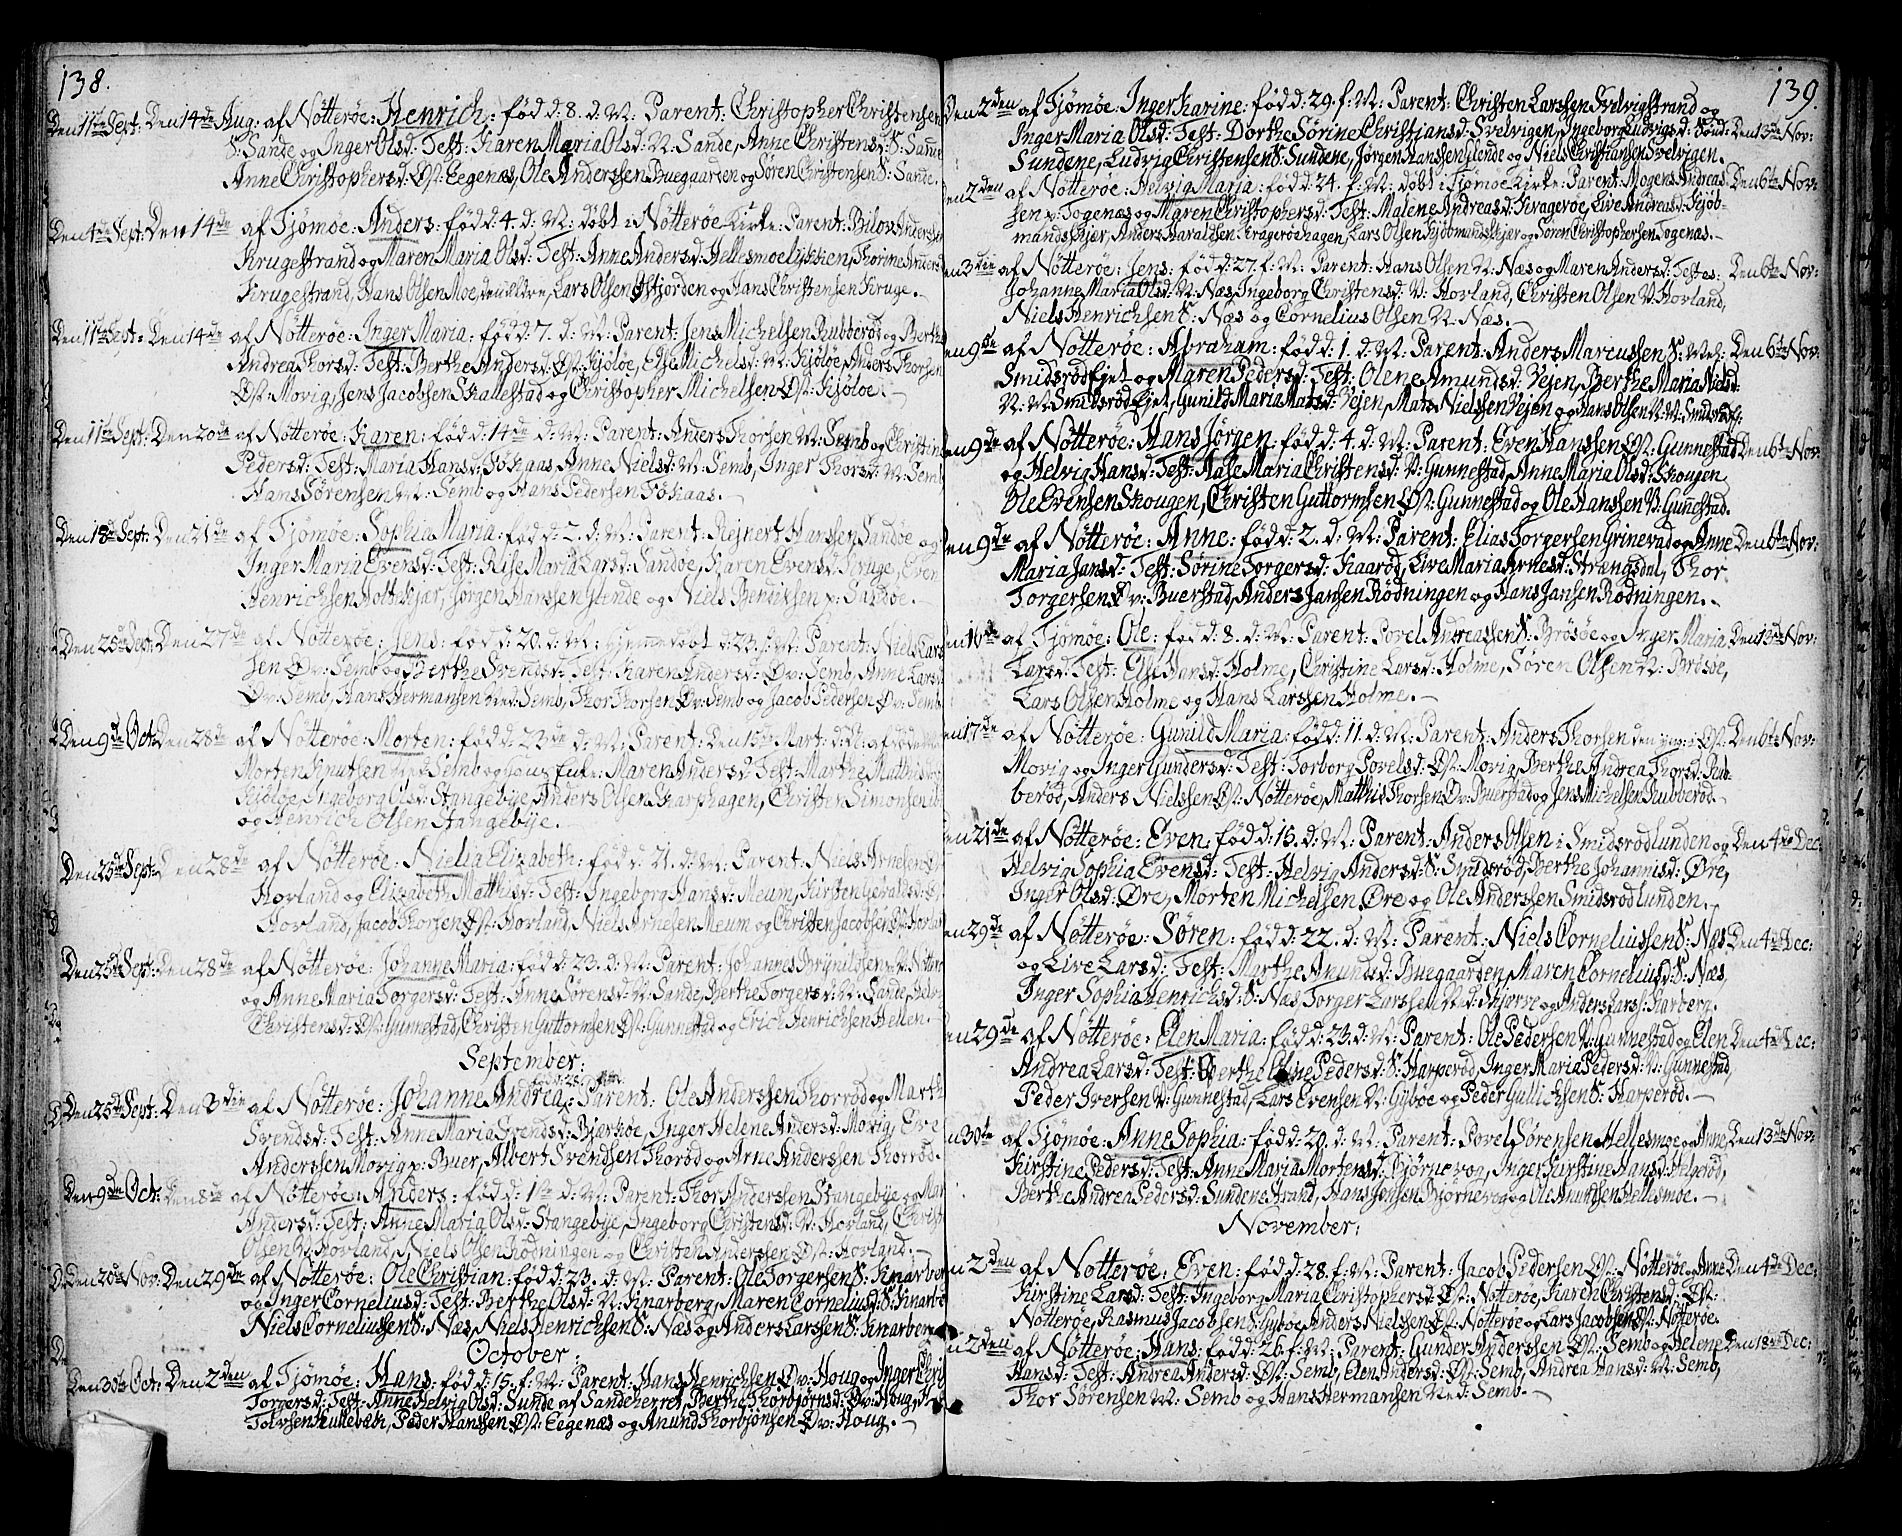 138.
Den 11te Sept: Den 14de Aug: af Nötteröe: Henrich: föd d: 8. d: M: Parent: Christopher Christensen
S: Sande og Inger Olsd: Test: Karen Maria Olsd: N: Sande, Anne Christensd: S: Sande
Anne Christophersd: Øst: Eegenæs, Ole Anderssen Buegaarden og Sören Christensen S: Sande.
Den 4de Sept: Den 14de af Tjömöe: Anders: föd d: 4. d: M: döbt i Nötteröe Kirke: Parent: Anderssen
Krugestrand og Maren Maria Olsd: Test: Anne Andersd: Hellesmoe, Thorine Andersd
Krugestrand, Hans Olsen Moe, den ældre, Lars Olsen Østjorden og Hans Christensen Kruge.
Den 11te Sept: Den 14de af Nötteröe: Inger Maria: föd d: 7. d: M: Parent: Jens Michelsen Rubberöd og Berthe
Andrea Thorsd: Test: Berthe Andersd: Øst: Kjölöe, Else Michelsd: N: Kjölöe, Anders Thorsen
Øst: Movig, Jens Jacobsen Skallestad og Christopher Michelsen Øst: Kjölöe.
Den 11te Sept: Den 20de af Nötteröe: Karen: föd d: 14de d: M: Parent: Anders Thorsen N: Semb og Christine
Pedersd: Test: Maria Hansd: Föskaas, Anne Nielsd: N: Semb, Inger Thorsd: N: Semb
Hans Sörensen N: Semb og Hans Pedersen Föskaas.
Den 18de Sept: Den 21de af Tjömöe: Sophia Maria: föd d: 2. d: M: Parent: Rejnert Hanssen Sandöe og
Inger Maria Evensd: Test: Rise Maria Larsd: Sandöe, Karen Evensd: Kruge, Even
Henrichsen Holtekjær, Jörgen Hanssen Glende og Niels Bentsen Sandöe.
Den 25de Sept: Den 27de af Nötteröe: Jens: föd d: 20. d: M: hjemmedöbt d: 23. M: Parent: Niels Lars-
sen Øv: Semb og Berthe Svendsd: Test: Karen Andersd: Øv: Semb, Anne Larsd:
Øv: Semb, Hans Hermansen Semb, Thor Thorsen Øv: Semb og Jacob Pedersen Øv: Semb
Den 9de Oct: Den 28de af Nötteröe: Morten: föd d: 23de d: M: Parent: Den 15de Mart: d: A: afdöde
Morten Knutsen Semb og hans Enke: Maren Andersd: Test: Marthe Matthisd:
Kjölöe, Ingeborg Olsd: Stangebije, Anders Olsen Skarphagen, Christen Simonsen
og Henrich Olsen Stangebije.
Den 25de Sept: Den 28de af Nötteröe: Nielia Elizabeth: föd d: 21. d: M: Parent: Niels Arnesen
Hovland og Elizabeth Matthisd: Test: Ingeborg Hansd: Meum, Kirsten
Hovland, Jacob Thorsen Øst: Hovland, Niels Arnesen Meum og Christen Jacobsen Øst: Hovland
Den 25de Sept: Den 28de af Nötteröe: Johanne Maria: föd d: 23. d: M: Parent: Johannes Brynildsen
og Anne Maria Torgersd: Test: Anne Sörensd: N: Sande, Berthe Torgersd: N: Sande, Helvig
Christensd: Øst: Gunnestad, Christen Guttormsen Øst: Gunnestad og Erich Henrichsen Hellen.
September:
Den 25de Sept: Den 3die af Nötteröe: Johanne Andrea: Parent: Ole Anderssen Thorröd og Marthe
Svendsd: Test: Anne Maria Svendsd: Bjerköe, Inger Helene Andersd: Movig, Even
Anderssen Morig Buer, Albert Svendsen Thoröd og Arne Anderssen Thorröd.
Den 9de Oct: Den 8de af Nötteröe: Anders: föd d: 1te d: M: Parent: Thor Anderssen Stangebije og Mar
Andersd: Test: Anne Maria Olsd: Stangebije, Ingeborg Christensd: Ø: Hovland, Christ
Olsen V: Hovland, Niels Olsen Rödningen og Christen Anderssen Øst: Hovland.
Den 20de Nov: Den 29de af Nötteröe: Ole Christian: föd d: 23. d: M: Parent: Ole Torgersen S: Knarberg
og Inger Corneliusd: Test: Berthe Olsd: N: Knarberg, Maren Corneliusd: S: Knarberg
Niels Corneliussen S: Næs, Niels Henrichsen S: Næs og Anders Larssen S: Knarberg
October:
Den 30te Oct: Den 2den af Tjömöe: Hans: föd d: 15. f: M: Parent: Hans Henrichsen Øv: Houg og Inger Chri
Torgersd: Test: Anne Helvig Olsd: Sunde af Sandeherret, Berthe Thorbjörnsd: Øv: Houg,
Tolvsen Kullebæk, Peder Hanssen Øst: Eegenæs og Anund Thorbjönsen Øv: Houg.
139.
Den 2den af Tjömöe: Inger Karine: föd d: 29. f: M: Parent: Christen Larssen Svelvigstrand og
Inger Maria Olsd: Test: Dorthe Sörine Christjansd: Svelvigen, Ingeborg Ludvigsd: Sönd: Den 13de Nov:
Sundene, Ludvig Christensen S: Sundene, Jörgen Hanssen Glende og Niels Christiansen Svelvigen.
Den 2den af Nötteröe: Helvig Maria: föd d: 24. f: M: döbt i Tjömöe Kirke: Parent: Mogens Andreas Den 6te Nov:
sen Togenæs og Maren Christophersd: Test: Malene Andreasd: Krageröe, Live Andreasd: Kjöb-
mandskjær, Anders Haraldsen Krageröehagen, Lars Olsen Kjöbmandskjær og Sören Christophersen Togenæs.
Den 3die af Nötteröe: Jens: föd d: 27. f: M: Parent: Hans Olsen N: Næs og Maren Andersd: Testes: Den 6te Nov:
Johanne Maria Olsd: N: Næs, Ingeborg Christensd: V: Hovland, Christen Olsen V: Hovland,
Niels Henrichsen S: Næs og Cornelius Olsen N: Næs.
Den 9de af Nötteröe: Abraham: föd d: 1. d: M: Parent: Anders Mariussen S: Den 6te Nov:
Smidsröd Ejet og Maren Pedersd: Test: Olene Amundsd: Vejen, Berthe Maria Nielsd:
N: Smidsröd Ejet, Gunild Maria Matsd: Vejen, Mats Nielssen Vejen og Hans Olsen
Den 9de af Nötteröe: Hans Jörgen: föd d: 4. d: M: Parent: Even Hanssen Øst: Gunnestad Den 6te Nov:
og Helvig Hansd: Test: Aase Maria Christensd: V: Gunnestad, Anne Maria Olsd: Skougen
Ole Evensen Skougen, Christen Guttormsen Øst: Gunnestad og Ole Hanssen V: Gunnestad.
Den 9de af Nötteröe: Anne: föd d: 2. d: M: Parent: Elias Torgersen Grinevad og Anne Den 6te Nov:
Maria Jansd: Test: Sörine Torgersd: Kaaröd, Live Maria Arnesd: Strængsdal, Thor
Torgersen Øv: Buerstad, Anders Jansen Rödningen og Hans Jansen Rödningen.
Den 16de af Tjömöe: Ole: föd d: 8. d: M: Parent: Povel Andreassen S: Brösöe og Inger Maria Den 13de Nov:
Larsd: Test: Else Hansd: Holme, Christine Larsd: Holme, Sören Olsen N: Brösöe,
Lars Olsen Holme og Hans Larssen Holme.
Den 17de af Nötteröe: Gunild Maria: föd d: 11. d: M: Parent: Anders Thorsen den yngre Øst: Den 6te Nov:
Movig og Inger Gundersd: Test: Torborg Povelsd: Øst: Movig, Berthe Andrea Thorsd: Rub-
beröd, Anders Nielssen Øst: Nötteröe, Matthis Thorsen Øv: Buerstad og Jens Michelsen Rubberöd.
Den 21de af Nötteröe: Even: föd d: 15. d: M: Parent: Anders Olsen i Smidsrödlunden og Den 4de Dec:
Helvig Sophia Evensd: Test: Helvig Andersd: S: Smidsröd, Berthe Johannisd: Øre,
Inger Olsd: Øre, Morten Michelsen Øre og Ole Anderssen Smidsrödlunden.
Den 29de af Nötteröe: Sören: föd d: 22. d: M: Parent: Niels Corneliussen S: Næs Den 4de Dec:
og Live Larsd: Test: Marthe Anundsd: Buegaarden, Maren Corneliusd: S: Næs,
Inger Sophia Henrichsd: S: Næs, Torger Larssen Skjerve og Anders Larss: Knarberg.
Den 29de af Nötteröe: Elen Maria: föd d: 23. d: M: Parent: Ole Pedersen V: Gunnestad og Elen Den 4de Dec:
Andrea Larsd: Test: Berthe Pedersd: S: Harperöd, Inger Maria Pedersd: V: Gunnestad,
Peder Iversen V: Gunnestad, Lars Evensen N: Gyböe og Peder Gullichsen S: Harperöd.
Den 30te af Tjömöe: Anne Sophia: föd d: 20. d: M: Parent: Povel Sörensen Hellesmoe og Anne Den 13de Nov:
Kirstine Pedersd: Test: Anne Maria Mortensd: Björnevog, Inger Kirstine Hansd: Helgeröd,
Berthe Andrea Pedersd: Sundene Strand, Hans Jensen Bjørnevog og Ole Knutsen Hellesmoe.
November:
Den 2den af Nötteröe: Even: föd d: 28. f: M: Parent: Jacob Pedersen Øst: Nötteröe og Anne Den 4de Dec:
Kirstine Larsd: Test: Ingeborg Maria Christophersd: Øst: Nötteröe, Karen Christensd: Øst:
Nötteröe, Rasmus Jacobsen Gyböe, Anders Nielssen Øst: Nötteröe og Lars Jacobsen Øst: Nötteröe.
Den 2den af Nötteröe: Hans: föd d: 26. f: M: Parent: Gunder Anderssen Øst: Semb og Helene Den 18de Dec:
Hansd: Test: Andrea Andersd: Øst: Semb, Elen Andersd: Øst: Semb, Andrea Hansd: N: Semb,
Thor Sörensen N: Semb og Hans Hermansen Ned: Semb.